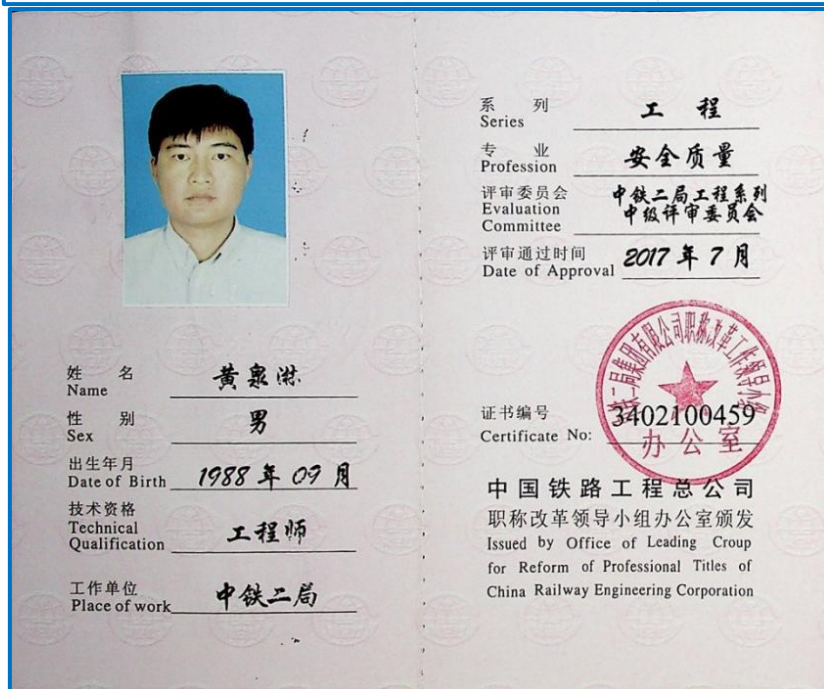 姓名
Name
黄泉淋
性别
Sex
男
出生年月
Date of Birth
1988年09月
技术资格
Technical
Qualification
工程师
工作单位
Place of work
中铁二局
系列
Series
工程
专业
Profession
安全质量
评审委员会
Evaluation
Committee
中铁二局工程系列
中级评审委员会
评审通过时间
Date of Approval
2017年7月
证书编号
Certificate No:
3402100459
办公室
中国铁路工程总公司
职称改革领导小组办公室颁发
Issued by Office of Leading Croup
for Reform of Professional Titles of
China Railway Engineering Corporation